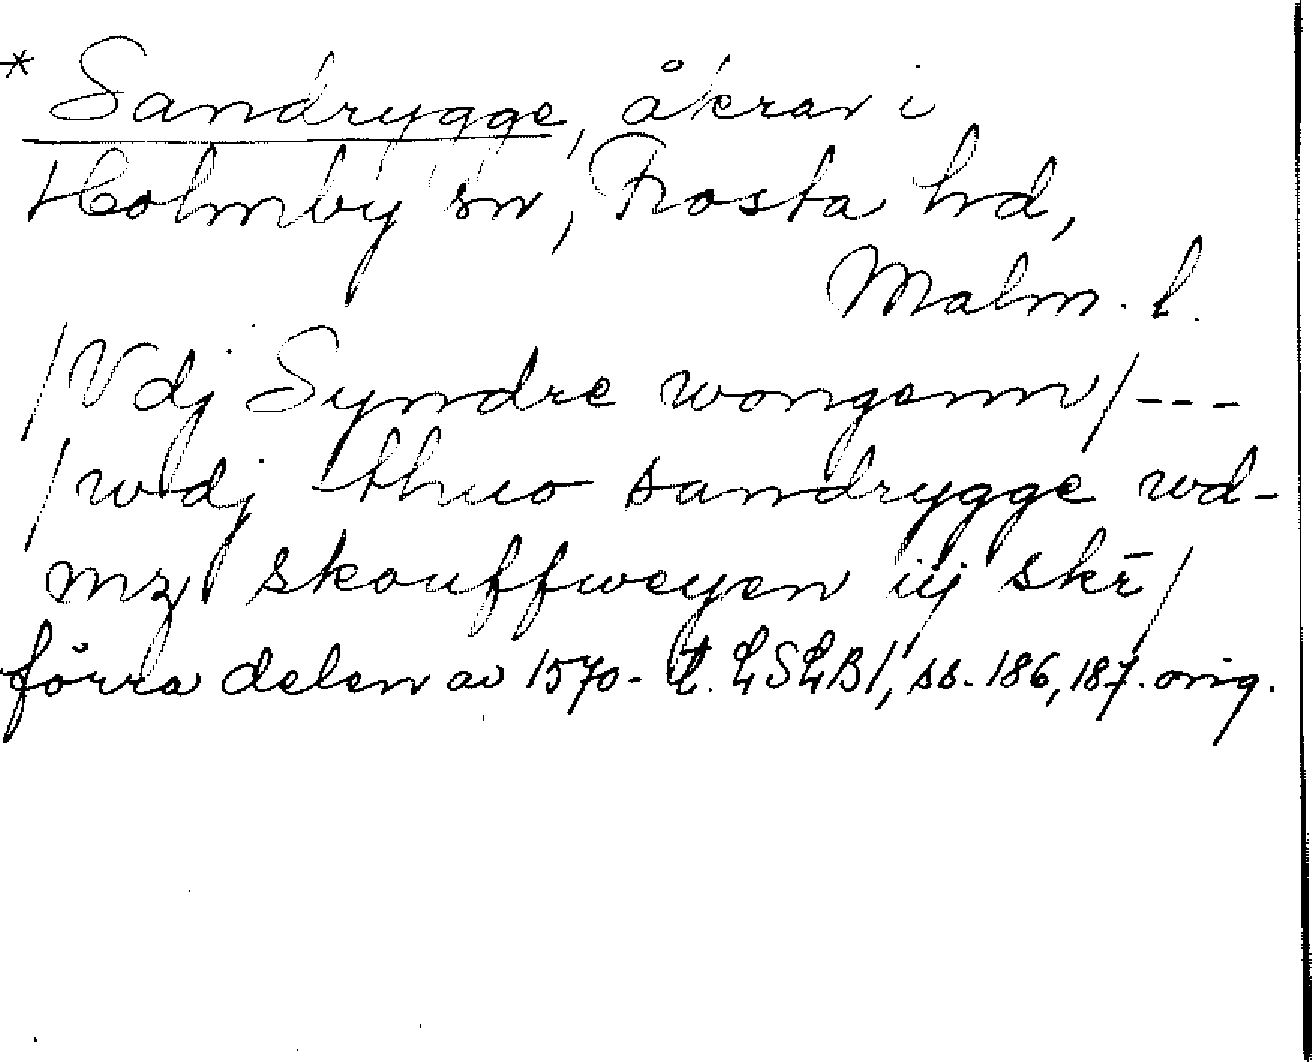 * Sandrygge, åkrar i
Holmby sn, Frosta hd,
Malm. l.
/Vdj Syndre wongenn/---
/wdj thuo sandrygge wd-
mz skouffweyen iij skr̄/
förra delen av 1570-t. LSLB1, ss. 186, 187. orig.